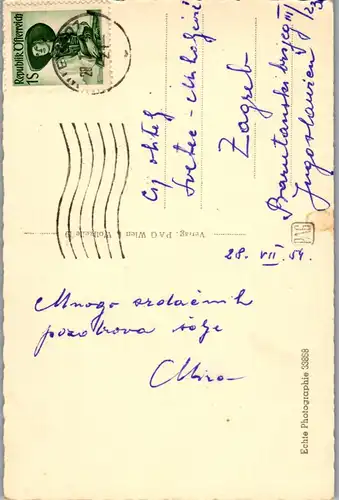 Republik Österreich
1S
Cij. obitelj
Svetec - Mihaljević
Zagreb
Barutanski brijeg
Jugoslawien
Verlag: P.A.G Wien I, Wollzeile 19
PAG
28. VII. 54.
Mnogo srdačnih
pozdrava šalje
Mira
Echte Photographie 33858